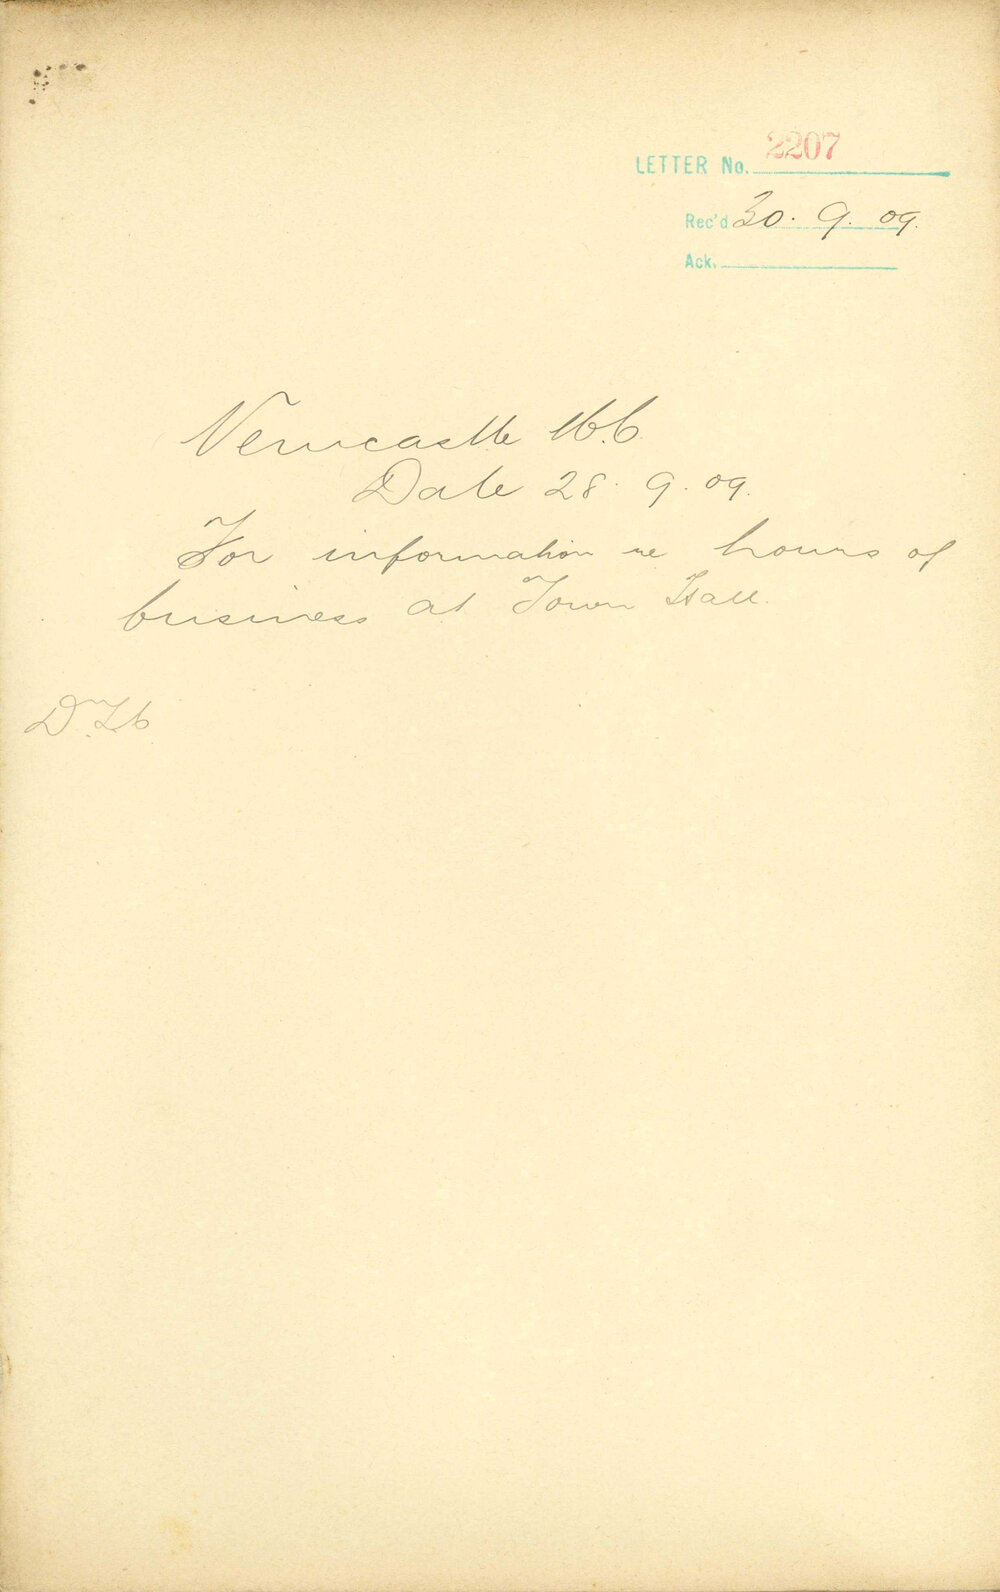 LETTER No. 2207
Rec'd 30. 9. 09.
Ack.
Newcastle M.C.
Date 28. 9. 09.
For information re hours of
business at Town Hall.